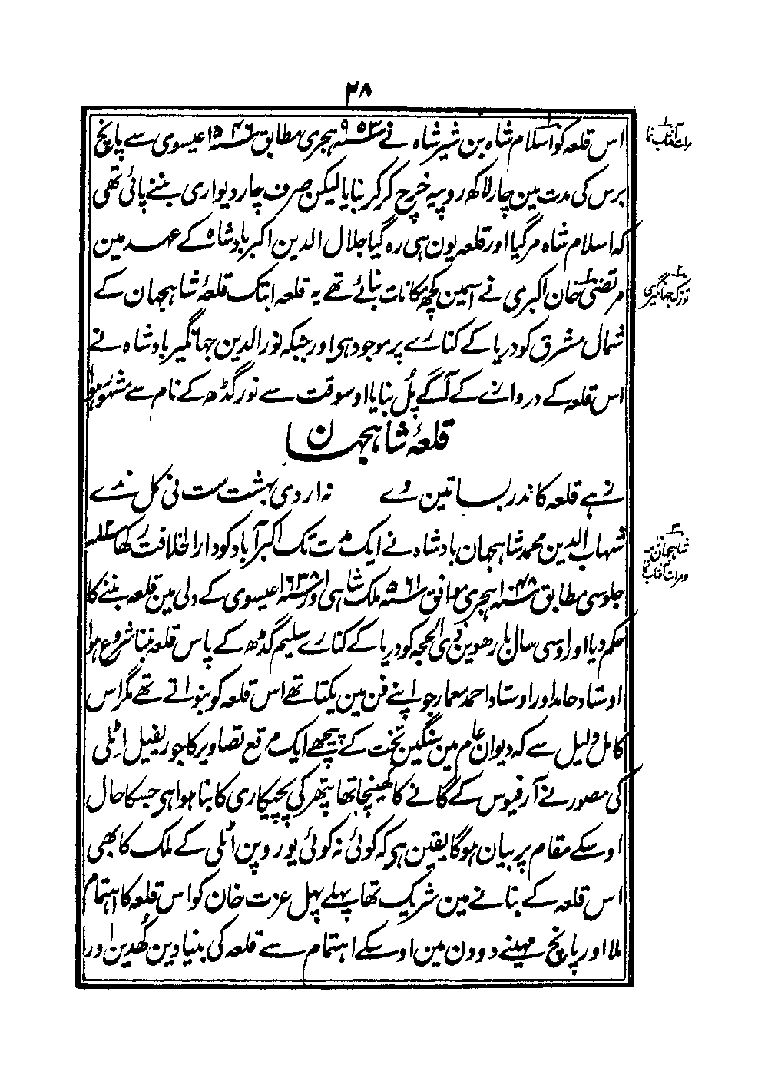 ۲۸
اس قلعہ کو اسلام شاہ بن شیر شاہ نے ۹۵۳ ہجری مطابق ۱۵۴۶ عیسوی سے پانچ
برس کی مدت مین چار لاکھ روپیہ خرچ کر کر بنایا لیکن صرف چار دیواری بننے پائی تھی
کہ اسلام شاہ مر گیا اور قلعہ یون ہی رہ گیا جلال الدین اکبر بادشاہ کے عہد مین
مرتضی خان اکبری نے اسمین کچھ مکانات بنائے تھے یہ قلعہ ابتک قلعۂ شاہجہان کے
شمال مشرق کو دریا کے کنارے پر موجود ہی اور جبکہ نور الدین جہانگیر بادشاہ نے
اس قلعہ کے دروازے کے آگے پُل بنایا اوسوقت سے نور گڈھ کے نام سے مشہور ہوا
قلعۂ شاہجہان
زہے قلعہ کاندر بساتین وے نہ اردی بہشت ست نی گل نہ دے
شہاب الدین محمد شاہجہان بادشاہ نے ایک مدت تک اکبر آباد کو دار الخلافت رکھا ۱۲
جلوسی مطابق ۱۰۴۸ ہجری موافق ۵۶۱ ملک شاہی اور ۱۶۳۸ عیسوی کے دلی مین قلعہ بننے کا
حکم دیا اور اوسی سال بارھوین ذی الحجہ کو دریا کے کنارے سلیم گڈھ کے پاس قلعہ بننا شروع ہوا
اوستاد حامد اور اوستاد احمد معمار جو اپنے فن مین یکتا تھے اس قلعہ کو بنواتے تھے مگر اس
کامل دلیل سے کہ دیوان عام مین سنگین تخت کے پیچھے ایک مرقع تصاویر کا جو ریفیل اٹلی
کی مصور نے آرفیوس کے گانے کا کھینچا تھا پتھر کی پچیکاری کا بنا ہوا ہی جسکا حال
اوسکے مقام پر بیان ہوگا یقین ہی کہ کوئی نہ کوئی یوروپین اٹلی کے ملک کا بھی
اس قلعہ کے بنانے مین شریک تھا پہلے پہل عزت خان کو اس قلعہ کا اہتمام
ملا اور پانچ مہینے دو دن مین اوسکے اہتمام سے قلعہ کی بنیادین کھدین اور
مرات آفتاب نما
توزک جہانگیری
شاہجہان نامہ
ومرات آفتاب نما